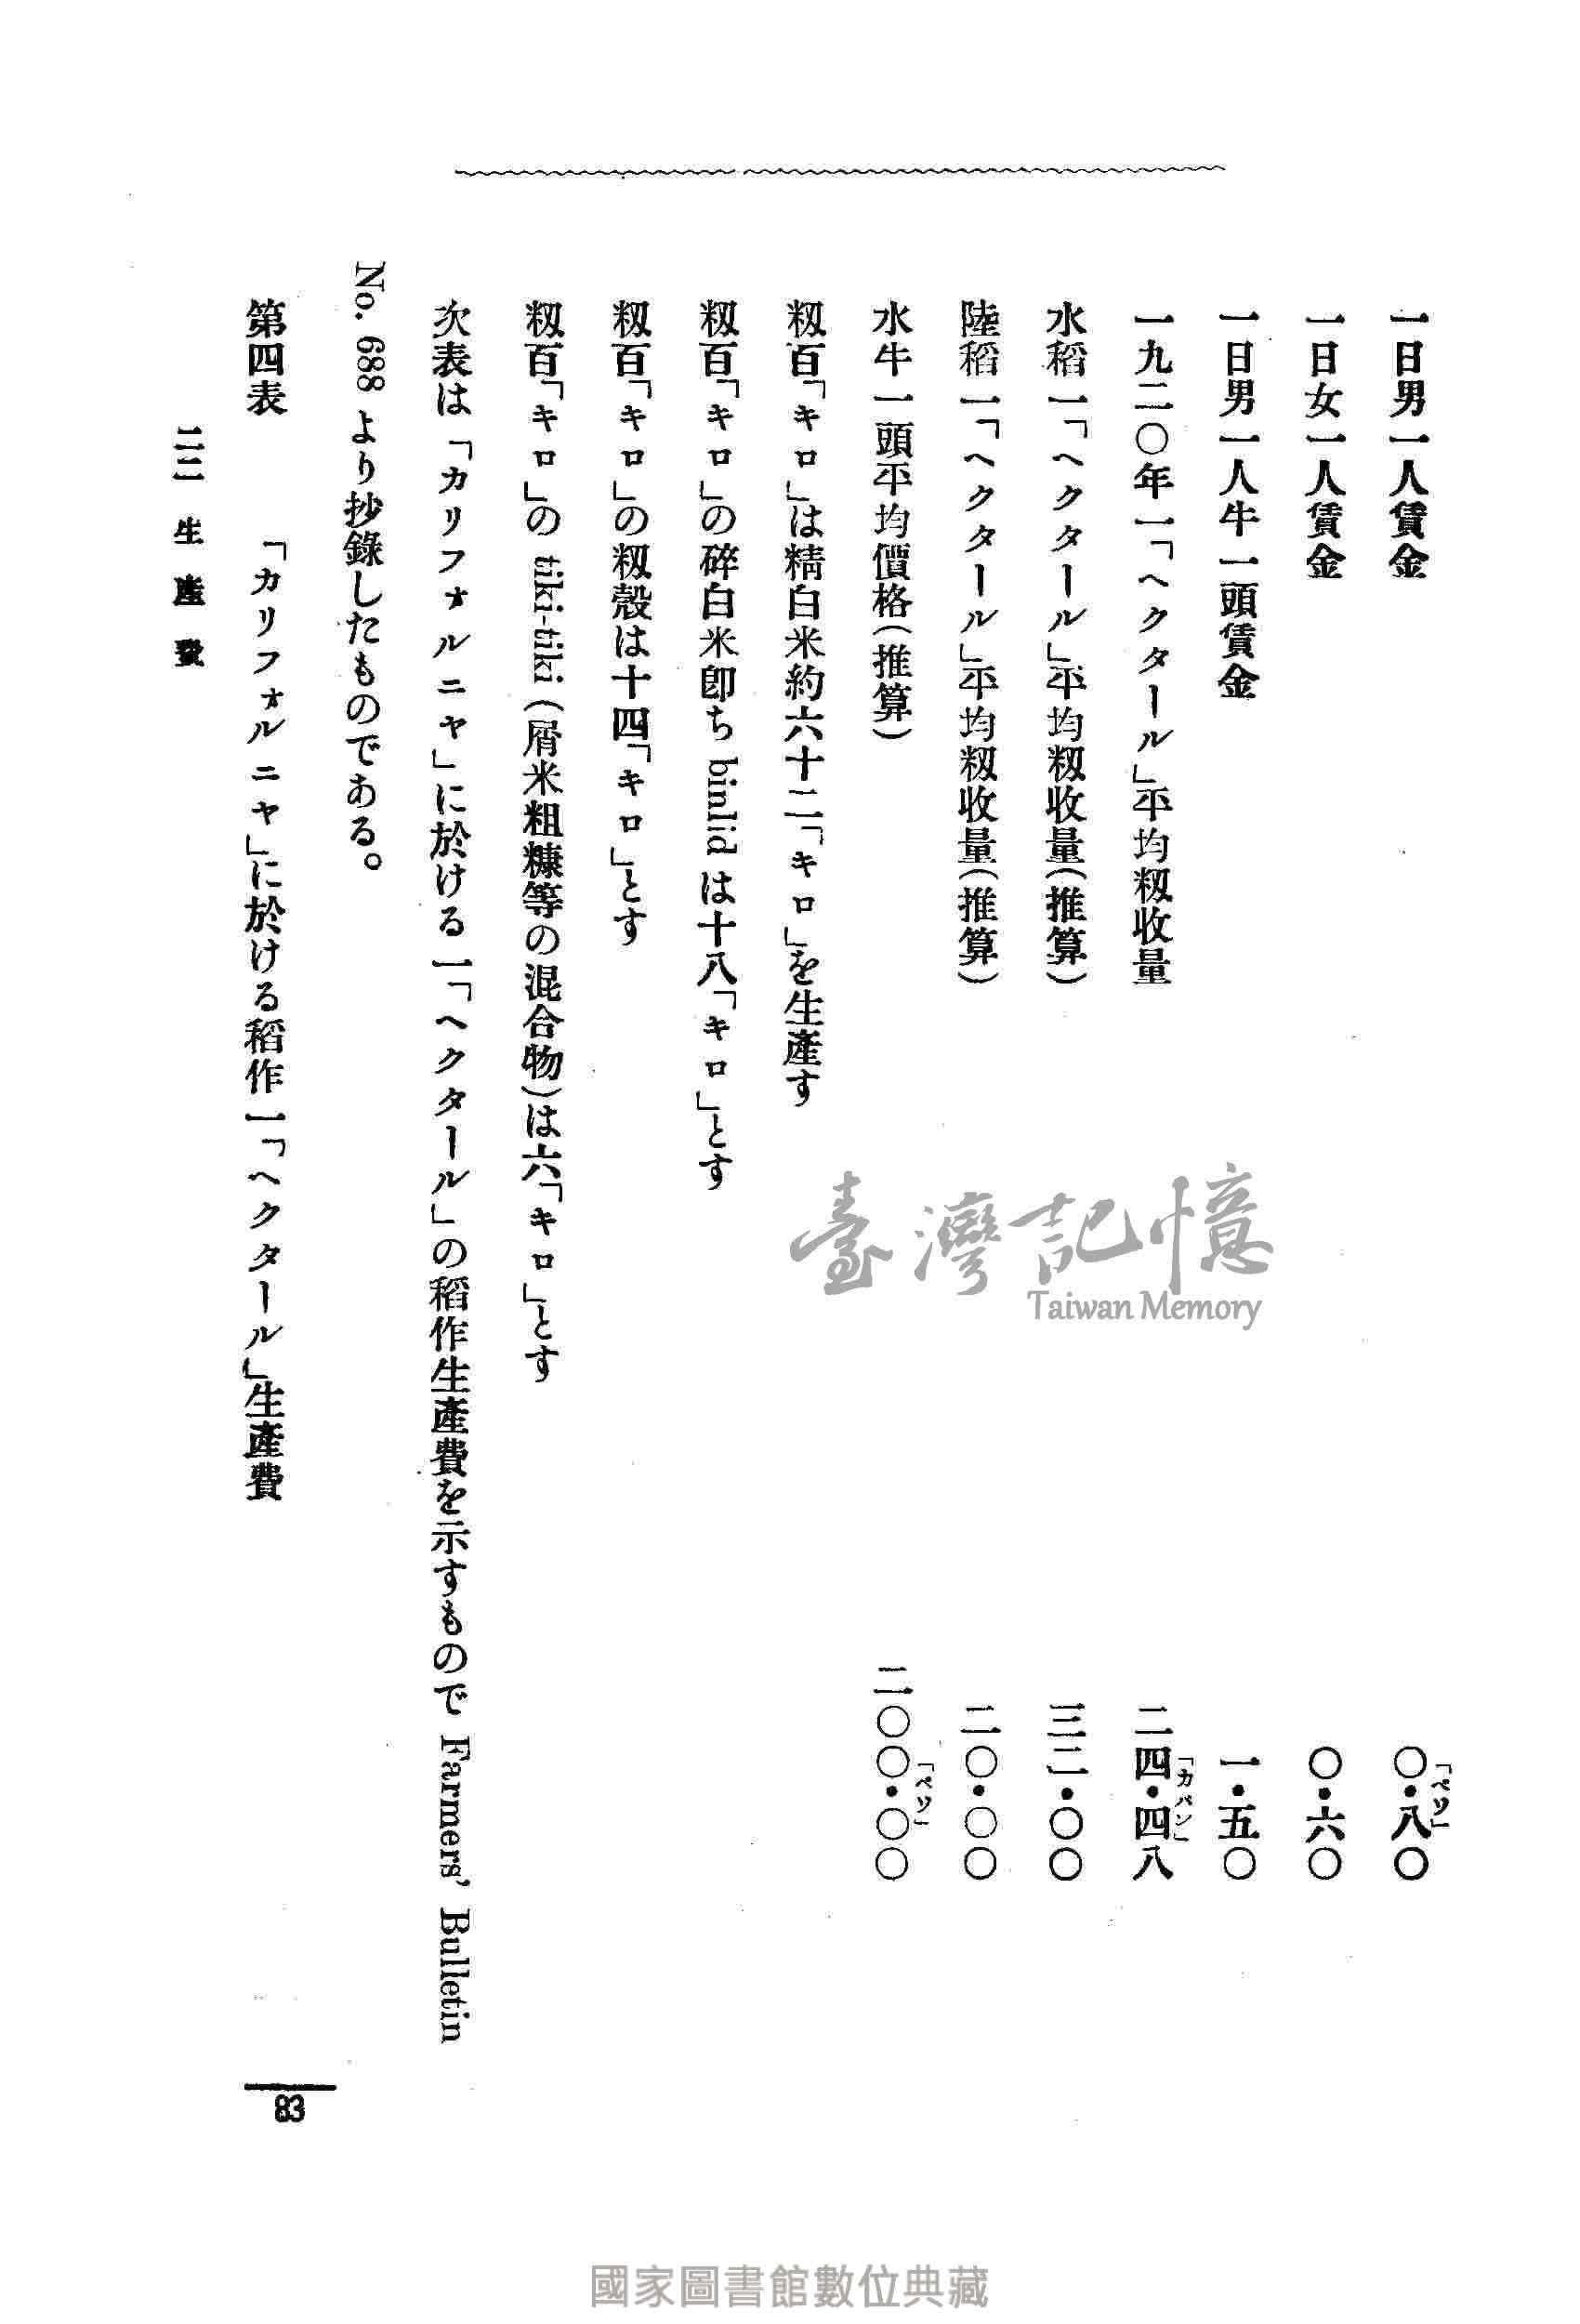 一日男一人賃金 「ペソ」〇・八〇
一日女一人賃金 〇・六〇
一日男一人牛一頭賃金 一・五〇
一九二〇年一「ヘクタール」平均籾收量 「カバン」二四・四八
水稻一「ヘクタール」平均籾收量(推算) 三二・〇〇
陸稻一「ヘクタール」平均籾收量(推算) 二〇・〇〇
水牛一頭平均價格(推算) 「ペソ」二〇〇・〇〇
籾百「キロ」は精白米約六十二「キロ」を生產す
籾百「キロ」の碎白米卽ち binlid は十八「キロ」とす
籾百「キロ」の籾殼は十四「キロ」とす
籾百「キロ」の tiki-tiki (屑米粗糠等の混合物)は六「キロ」とす
次表は「カリフォルニャ」に於ける一「ヘクタール」の稻作生產費を示すもので Farmers' Bulletin
No. 688 より抄錄したものである。
第四表 「カリフォルニャ」に於ける稻作一「ヘクタール」生產費
二二 生產費
83
臺灣記憶
Taiwan Memory
國家圖書館數位典藏